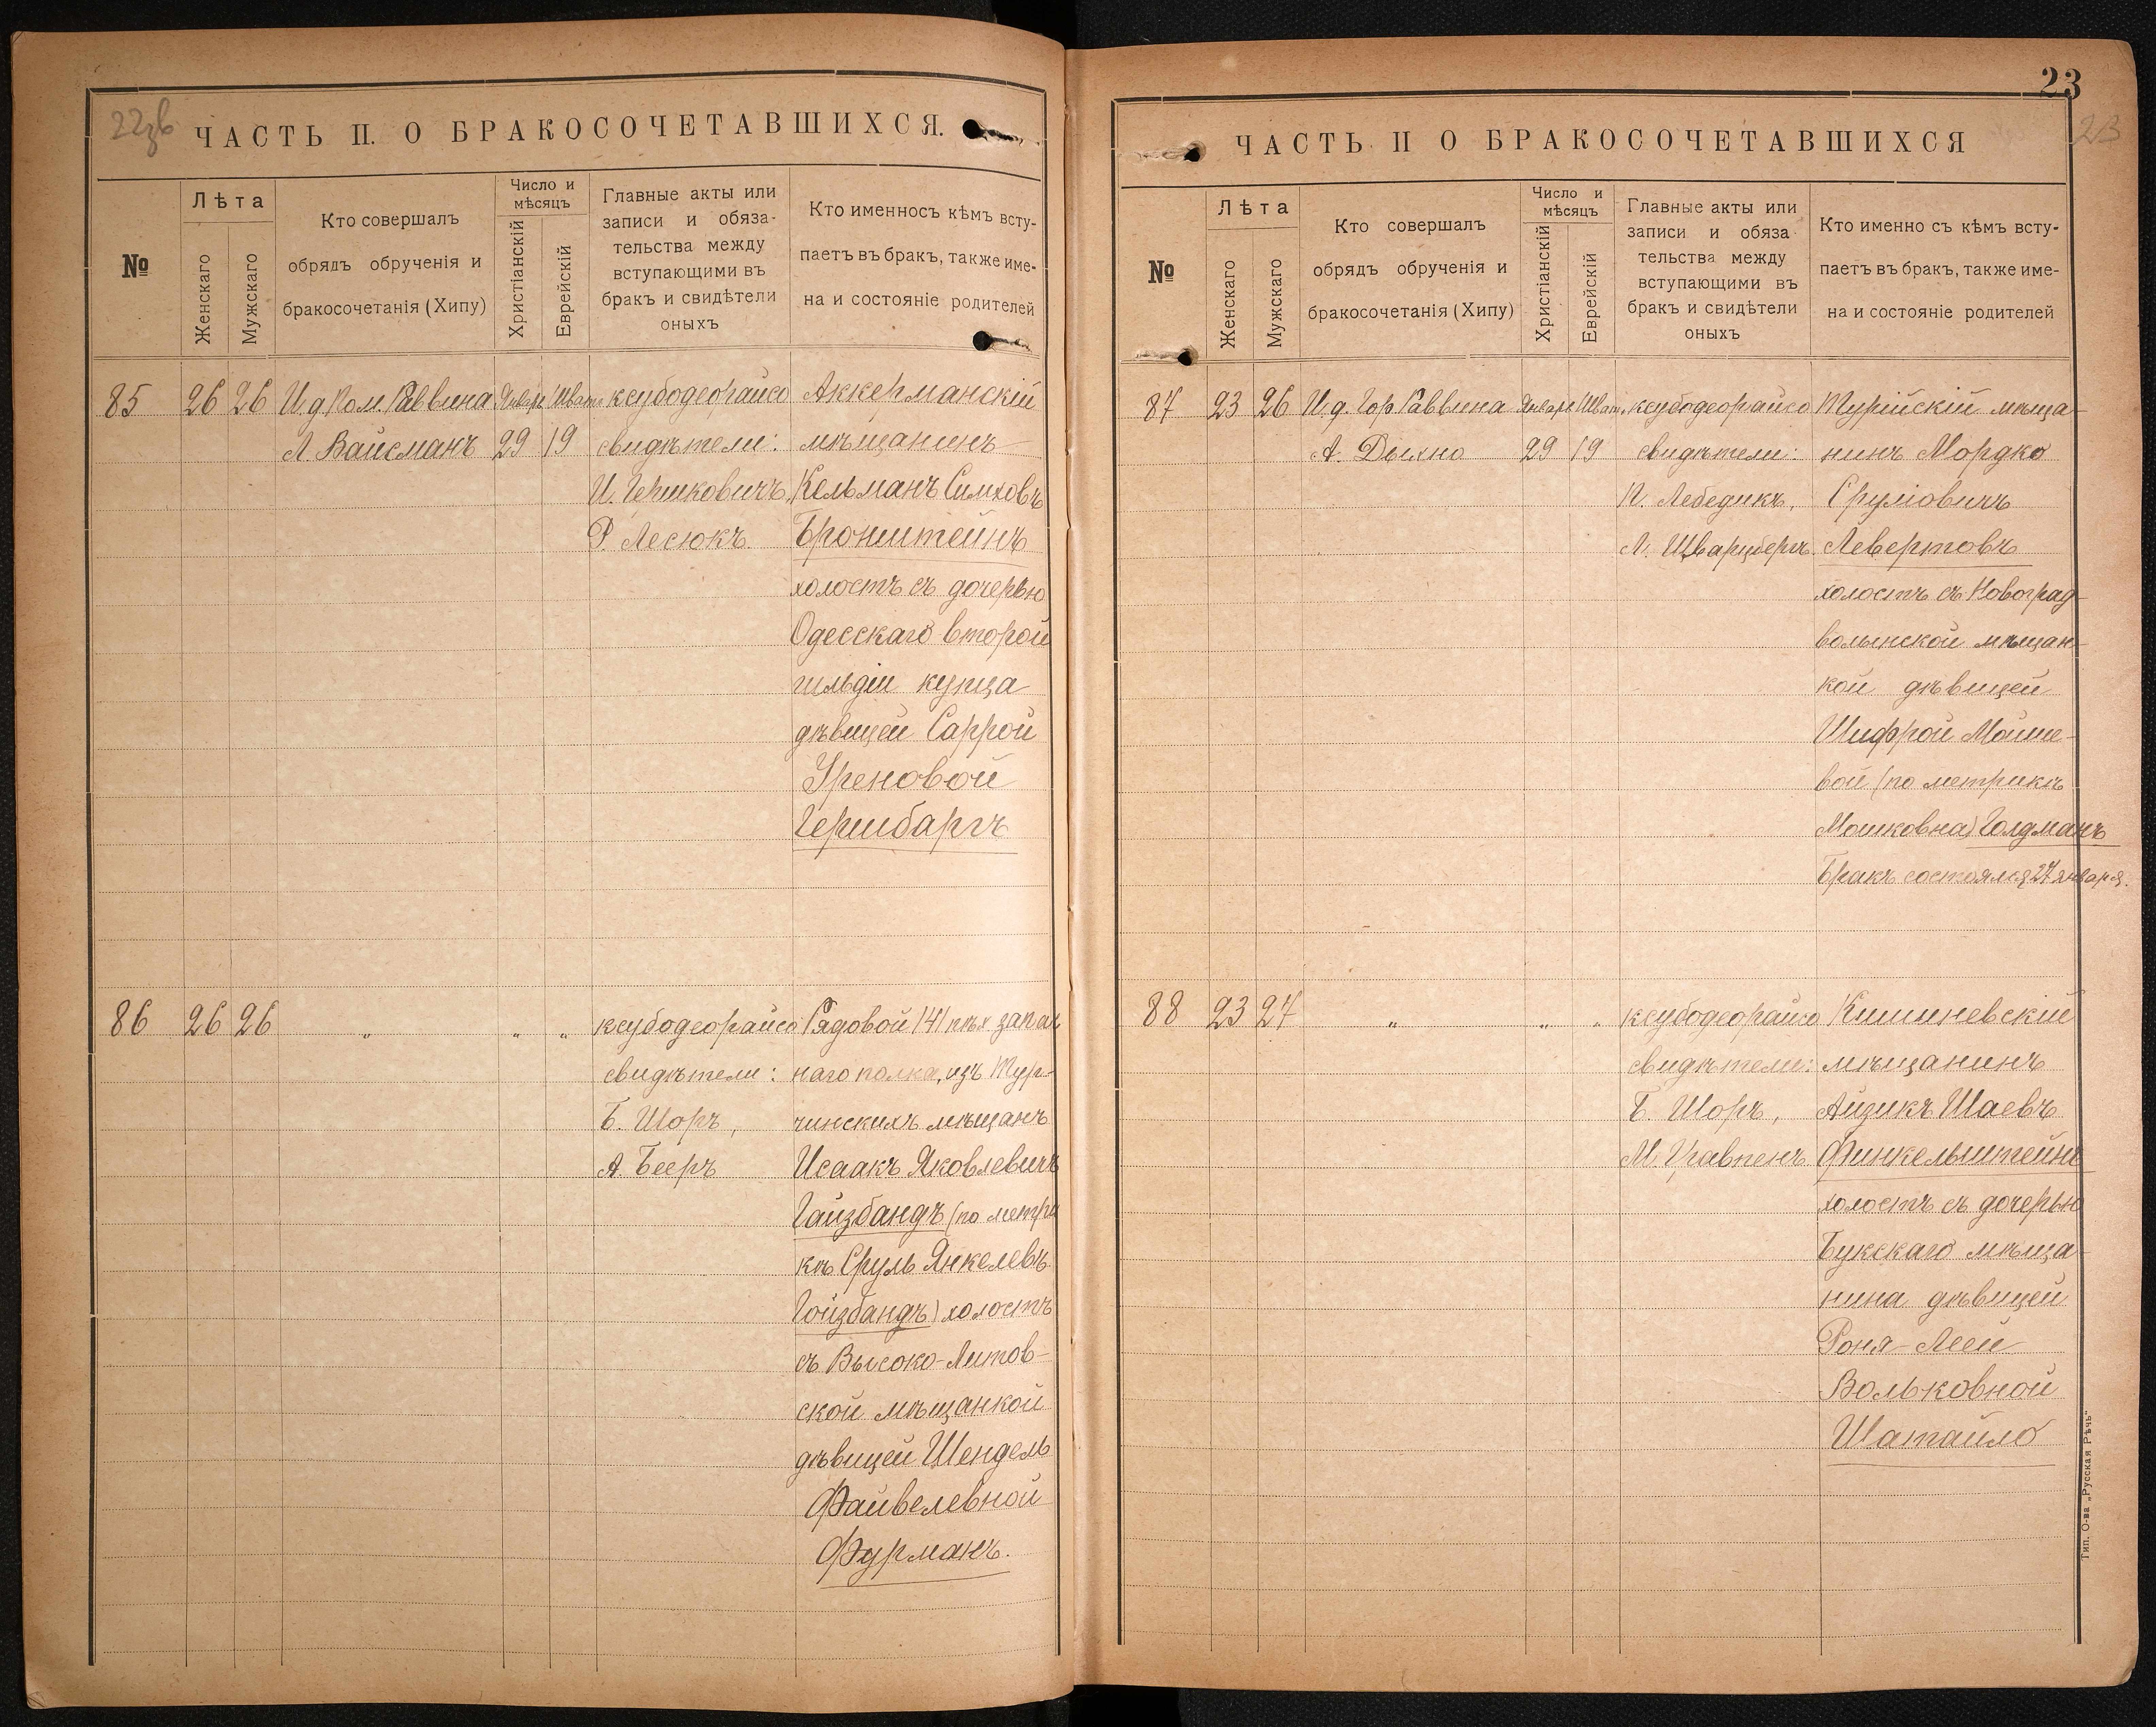 22зв
ЧАСТЬ II. О БРАКОСОЧЕТАВШИХСЯ.
№
Лѣта
Женскаго
Мужскаго
Кто совершалъ
обрядъ обрученія и
бракосочетанія (Хипу)
Число и
мѣсяцъ
Христіанскій
Еврейскій
Главные акты или
записи и обяза-
тельства между
вступающими въ
бракъ и свидѣтели
оныхъ
Кто именносъ кѣмъ всту-
паетъ въ бракъ, также име-
на и состояніе родителей
85 26 26 И д Ком. Раввина Январь Шватъ ксубодеорайсо Аккерманскій
Л. Вайсманъ 29 19 свидѣтели: мѣщанинъ
И. Гершковичъ, Кельманъ Симховъ
Р. Лесюкъ. Бронштейнъ
холостъ съ дочерью
Одесскаго второй
гильдіи купца
дѣвицей Саррой
Уреновой
Гершбаргъ
86 26 26 „ „ „ ксубодеорайсо Рядовой 141 пѣх запас
свидѣтели: наго полка, изъ Тур-
Б. Шоръ, чинскихъ мѣщанъ
А. Бееръ Исаакъ Яковлевичъ
Гайзбандъ (по метри
кѣ Сруль Янкелевъ
Гойзбандъ) холостъ
съ Высоко-Литов-
ской мѣщанкой
дѣвицей Шендель
Файвелевной
Фурманъ.
23
23
ЧАСТЬ II О БРАКОСОЧЕТАВШИХСЯ
№
Лѣта
Женскаго
Мужскаго
Кто совершалъ
обрядъ обрученія и
бракосочетанія (Хипу)
Число и
мѣсяцъ
Христіанскій
Еврейскій
Главные акты или
записи и обяза
тельства между
вступающими въ
бракъ и свидѣтели
оныхъ
Кто именно съ кѣмъ всту-
паетъ въ бракъ, также име-
на и состояніе родителей
87 23 26 И. д. Гор Раввина Январь Шват. ксубодеорайсо Турійскій мѣща-
А. Дыхно 29 19 свидѣтели: нинъ Мордко
П. Лебедикъ, Сруліовичъ
Л. Шварцбергъ. Левертовъ
холостъ съ Новоград-
волынской мѣщан-
кой дѣвицей
Шифрой Мойше-
вой (по метрикѣ
Мошковна) Голдманъ
Бракъ состоялся 27 января.
88 23 27 „ „ „ ксубодеорайсо Кишиневскій
свидѣтели: мѣщанинъ
Б. Шоръ, Айзикъ Шаевъ
М. Уравпенъ. Финкельштейнъ
холостъ съ дочерью
Букскаго мѣща-
нина дѣвицей
Роня-Леей
Вольковной
Шатайло
Тип. О-ва „Русская Рѣчь"